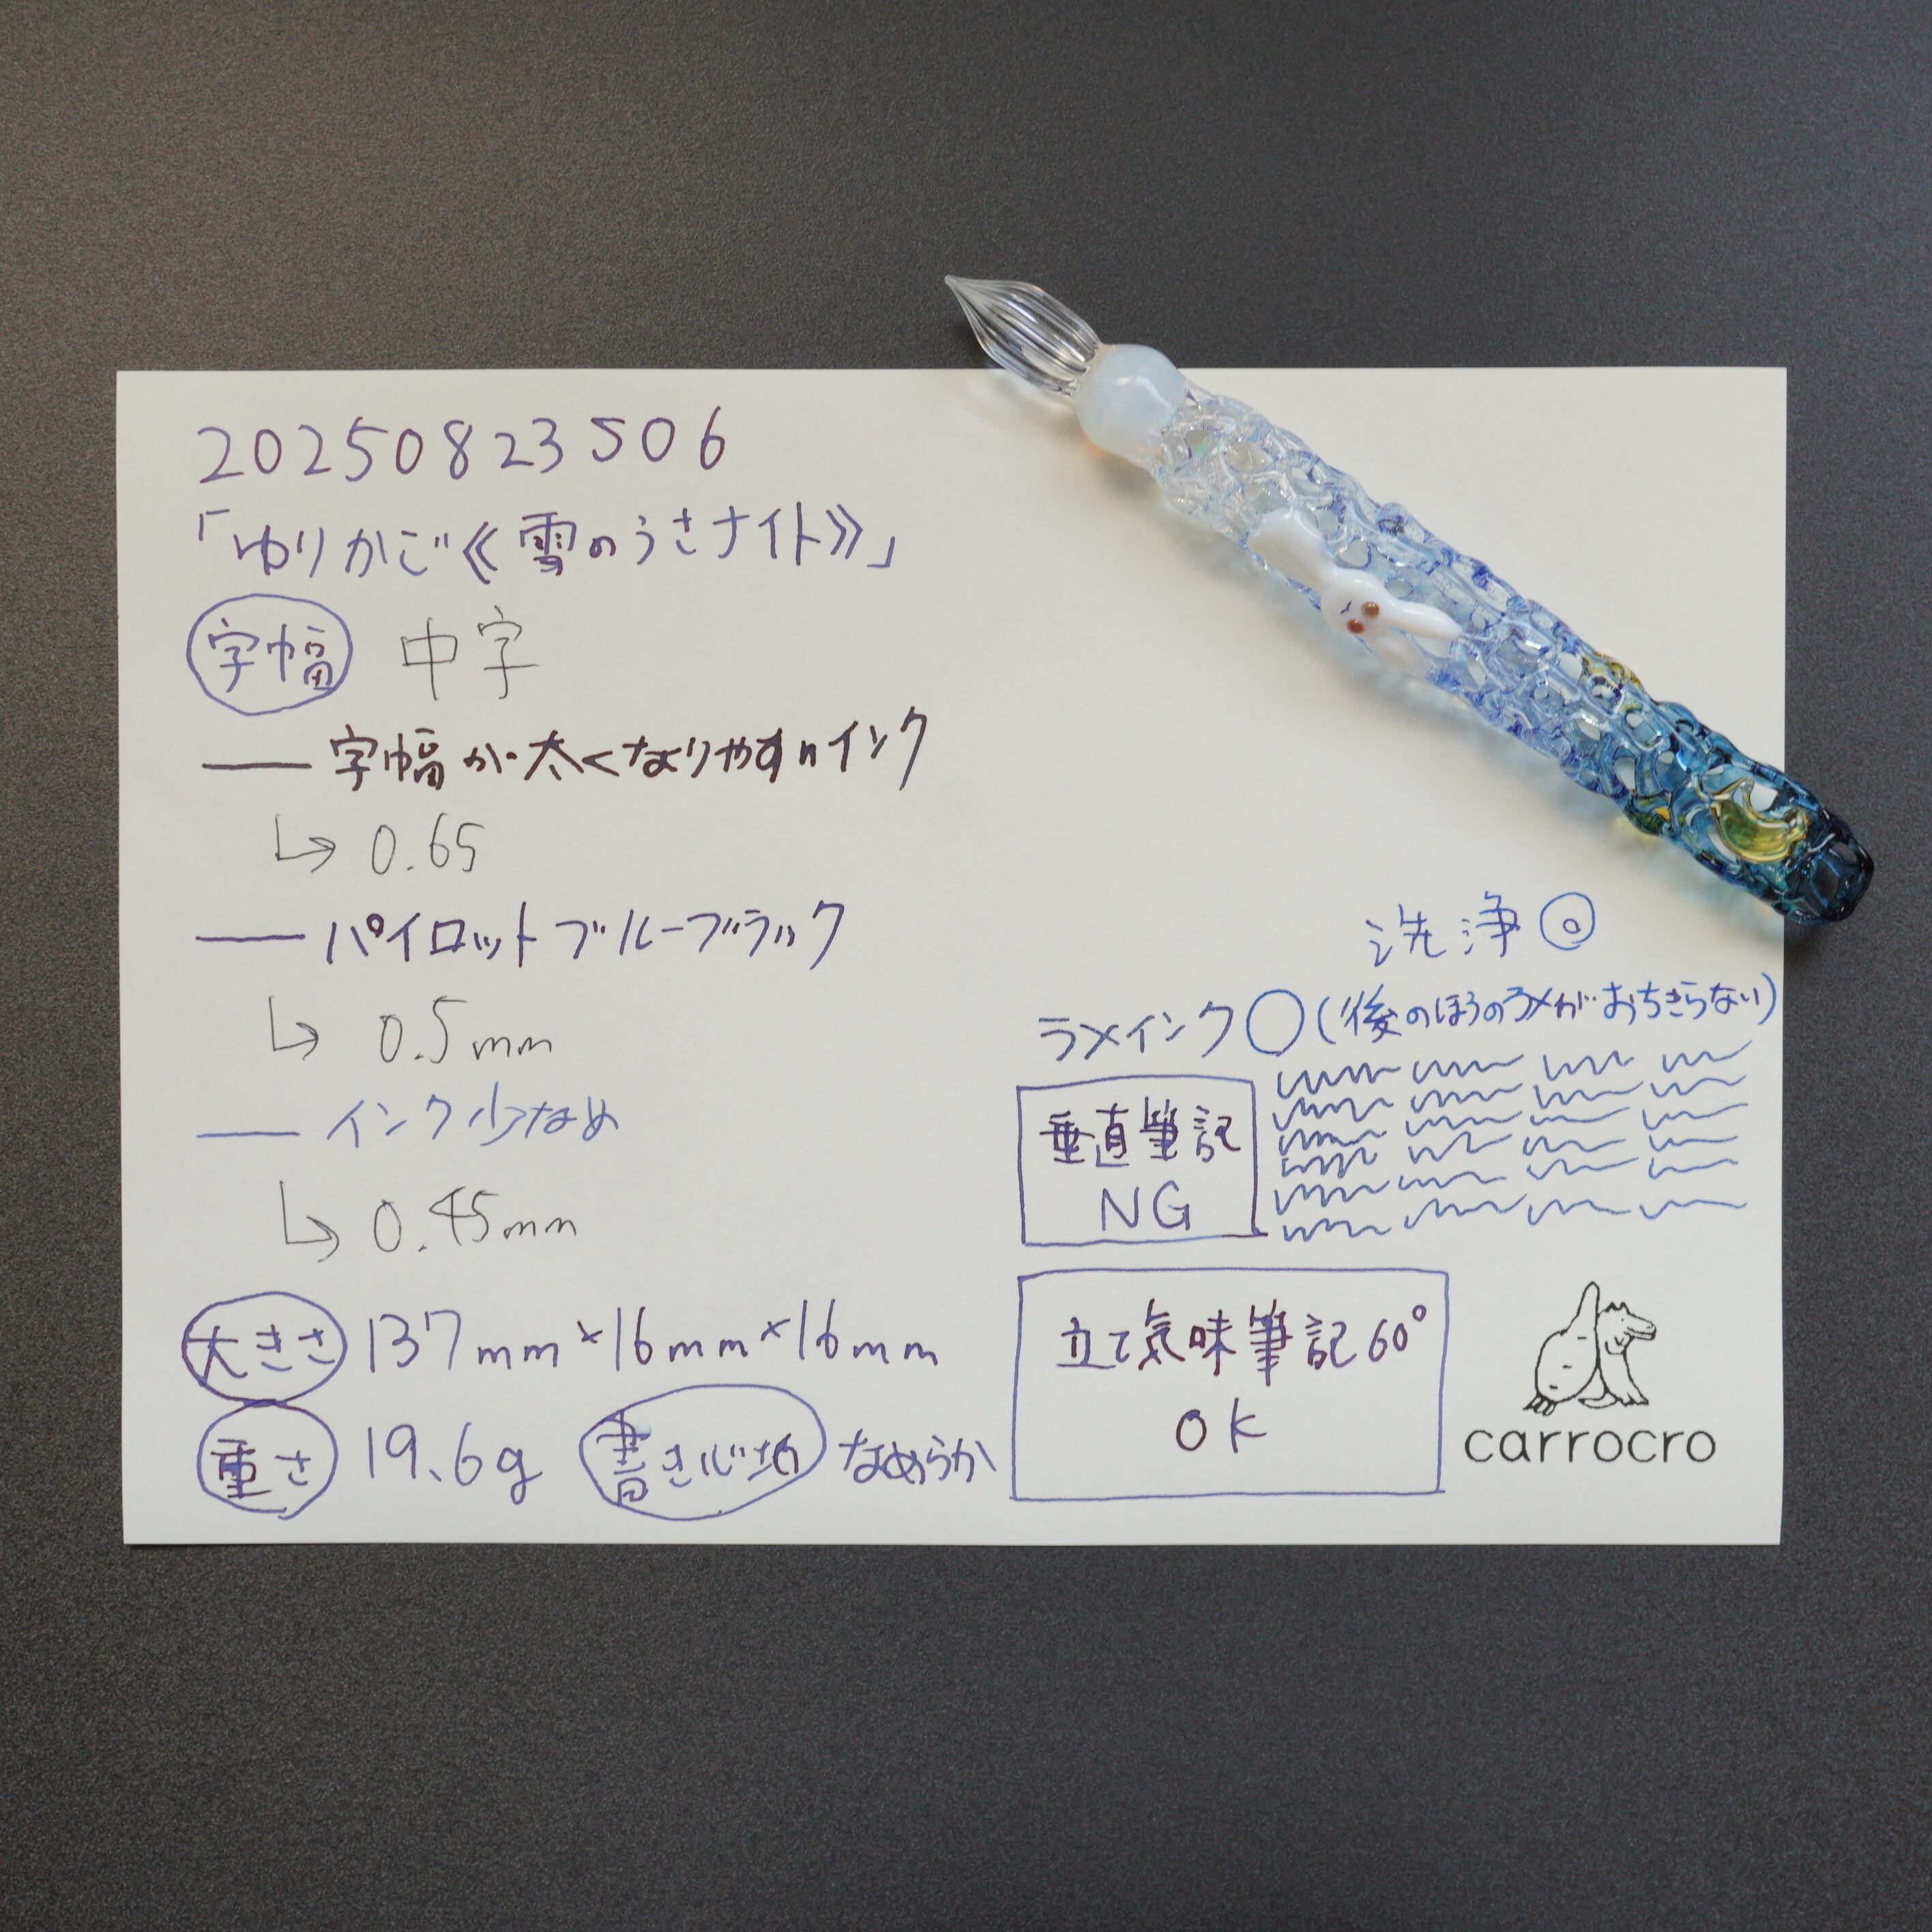 20250823S06
「ゆりかご《雪のうさナイト》」
字幅 中字
字幅が太くなりやすいインク
↳ 0.65
パイロットブルーブラック
↳ 0.5mm
インク少なめ
↳ 0.45mm
大きさ 137mm×16mm×16mm
重さ 19.6g 書き心地 なめらか
洗浄◎
ラメインク○(後のほうのラメがおちきらない)
垂直筆記
NG
立て気味筆記60°
OK
carrocro